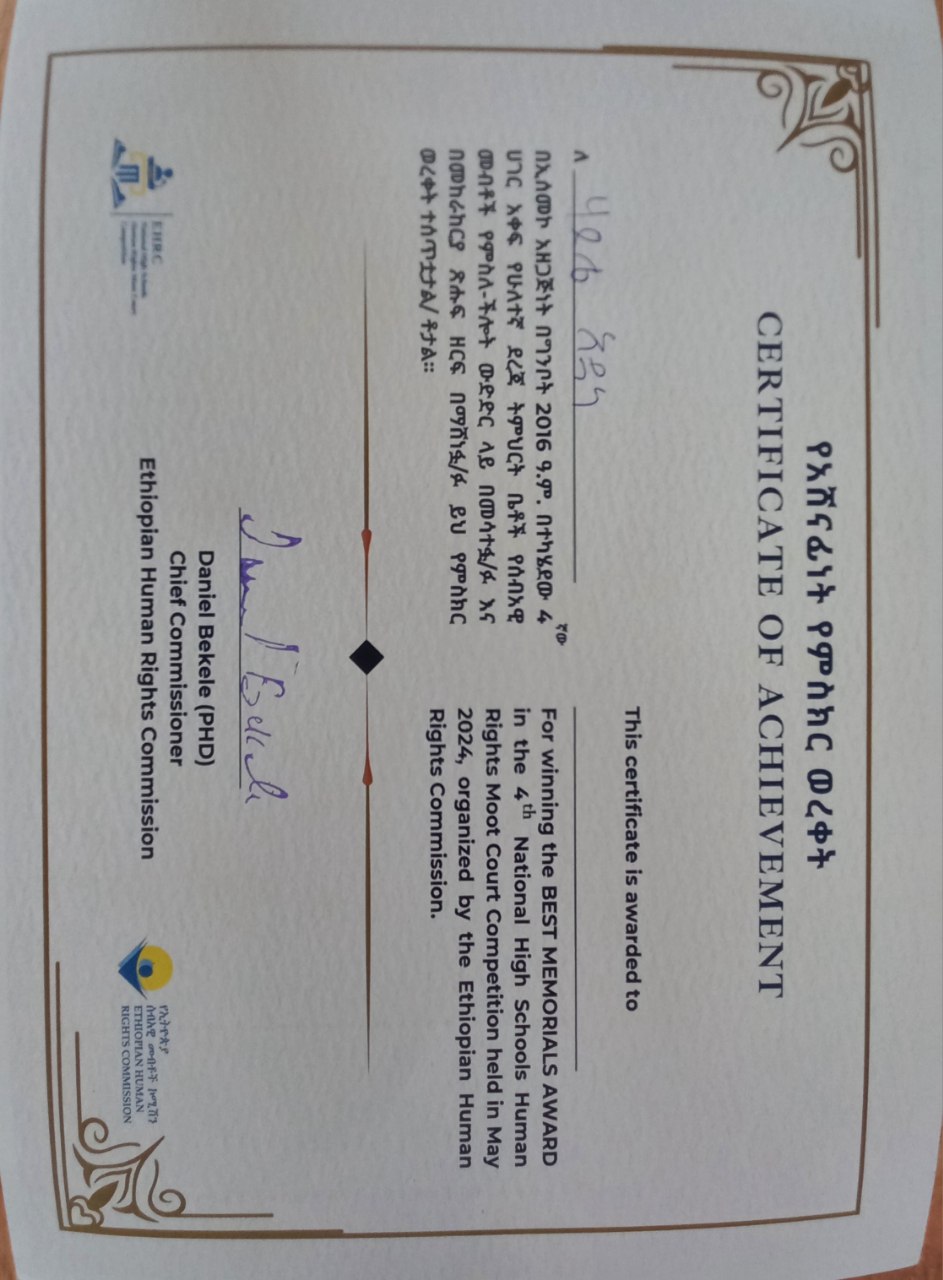 የአሸናፊነት የምስክር ወረቀት
CERTIFICATE OF ACHIEVEMENT
ለ
በኢሰመኮ አዘጋጅነት በግንቦት 2016 ዓ.ም. በተካሄደው 4ኛው
ሀገር አቀፍ የሁለተኛ ደረጃ ትምህርት ቤቶች የሰብአዊ
መብቶች የምስለ-ችሎት ውድድር ላይ በመሳተፏ/ፉ እና
በመከራከርያ ጽሑፍ ዘርፍ በማሸነፏ/ፉ ይህ የምስክር
ወረቀት ተሰጥቷታል/ ቶታል።
This certificate is awarded to
For winning the BEST MEMORIALS AWARD
in the 4th National High Schools Human
Rights Moot Court Competition held in May
2024, organized by the Ethiopian Human
Rights Commission.
Daniel Bekele
Daniel Bekele (PHD)
Chief Commissioner
Ethiopian Human Rights Commission
EHRC
National High Schools
Human Rights Moot Court
Competition
የኢትዮጵያ
ሰብአዊ መብቶች ኮሚሽን
ETHIOPIAN HUMAN
RIGHTS COMMISSION